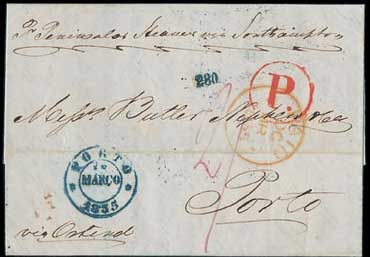 Pr Peninsular Steamer via Southampton
280
P.
Messrs Butler Nephew & Co
PORTO
MARÇO
1855
Porto
via Ostend